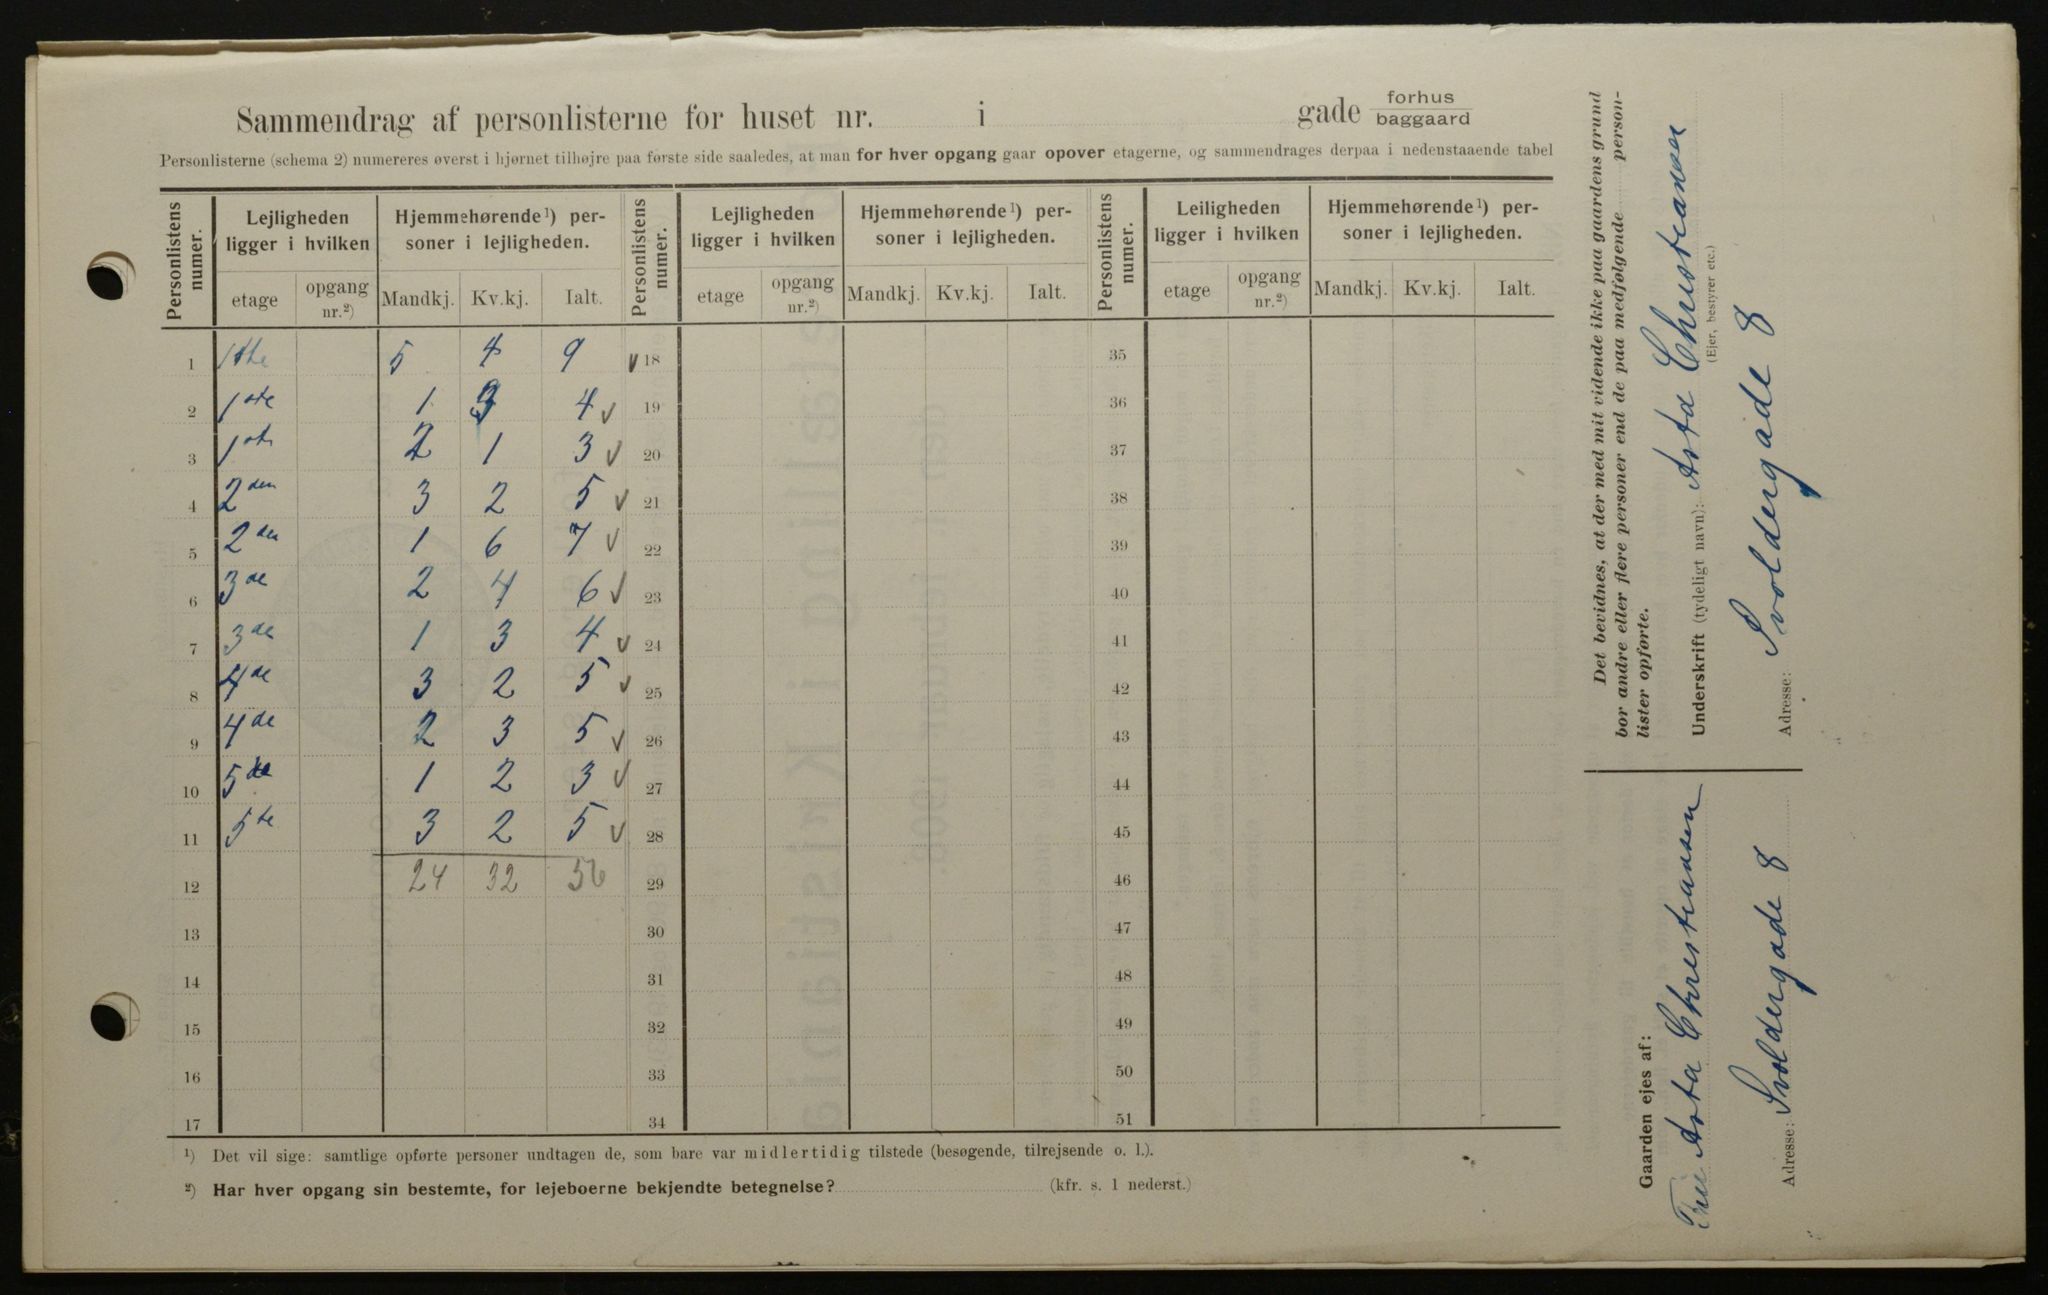 Sammendrag af personlisterne for huset nr. i gade forhus baggaard
Personlisterne (schema 2) numereres øverst i hjørnet tilhøjre paa første side saaledes, at man for hver opgang gaar opover etagerne, og sammendrages derpaa i nedenstaaende tabel
Personlistens numer. Lejligheden ligger i hvilken Hjemmehørende¹) personer i lejligheden. Personlistens numer. Lejligheden ligger i hvilken Hjemmehørende¹) personer i lejligheden. Personlistens numer. Leiligheden ligger i hvilken Hjemmehørende¹) personer i lejligheden.
etage opgang nr.²) Mandkj. Kv.kj. Ialt. etage opgang nr.²) Mandkj. Kv.kj. Ialt. etage opgang nr.²) Mandkj. Kv.kj. Ialt.
1 1ste 5 4 9 ✓ 18 35
2 1ste 1 3 4 ✓ 19 36
3 1ste 2 1 3 ✓ 20 37
4 2den 3 2 5 ✓ 21 38
5 2den 1 6 7 ✓ 22 39
6 3de 2 4 6 ✓ 23 40
7 3de 1 3 4 ✓ 24 41
8 4de 3 2 5 ✓ 25 42
9 4de 2 3 5 ✓ 26 43
10 5te 1 2 3 ✓ 27 44
11 5te 3 2 5 ✓ 28 45
12 24 32 56 29 46
13 30 47
14 31 48
15 32 49
16 33 50
17 34 51
¹) Det vil sige: samtlige opførte personer undtagen de, som bare var midlertidig tilstede (besøgende, tilrejsende o. l.).
²) Har hver opgang sin bestemte, for lejeboerne bekjendte betegnelse? (kfr. s. 1 nederst.)
Det bevidnes, at der med mit vidende ikke paa gaardens grund
bor andre eller flere personer end de paa medfølgende person-
lister opførte.
Underskrift (tydeligt navn): Asta Christiansen
(Ejer, bestyrer etc.)
Adresse: Svoldergade 8
Gaarden ejes af:
Fru Asta Christiansen
Adresse: Svoldergade 8